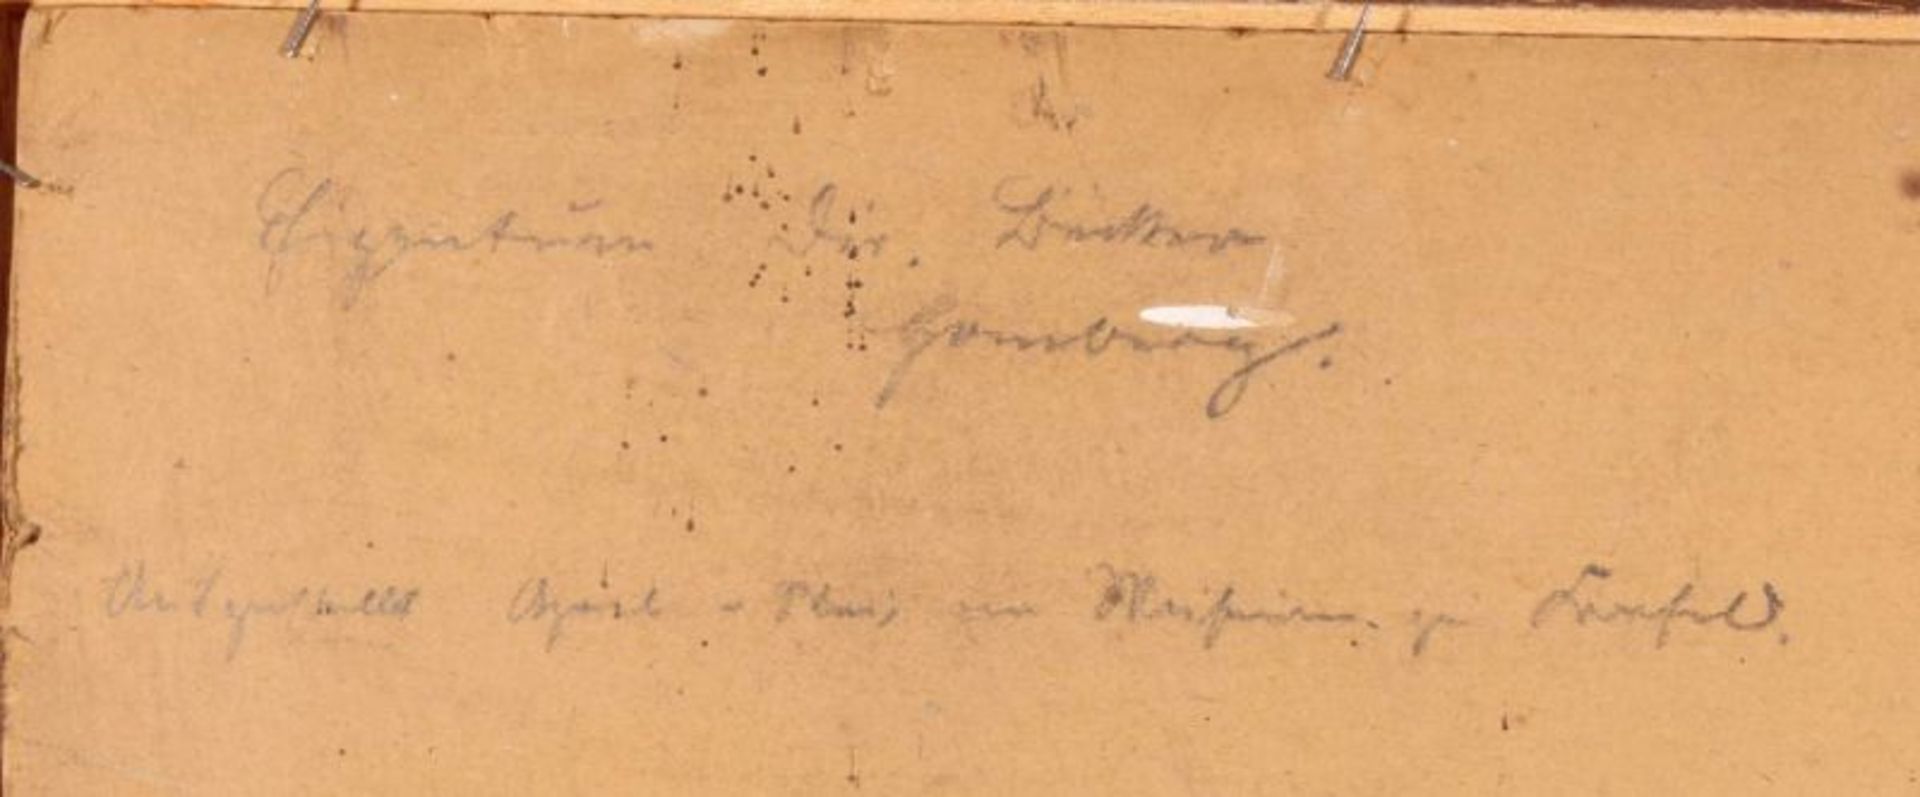 Eigentum Dir. Bücker
Homberg.
Ausgestellt April - Mai im Museum zu Krefeld.